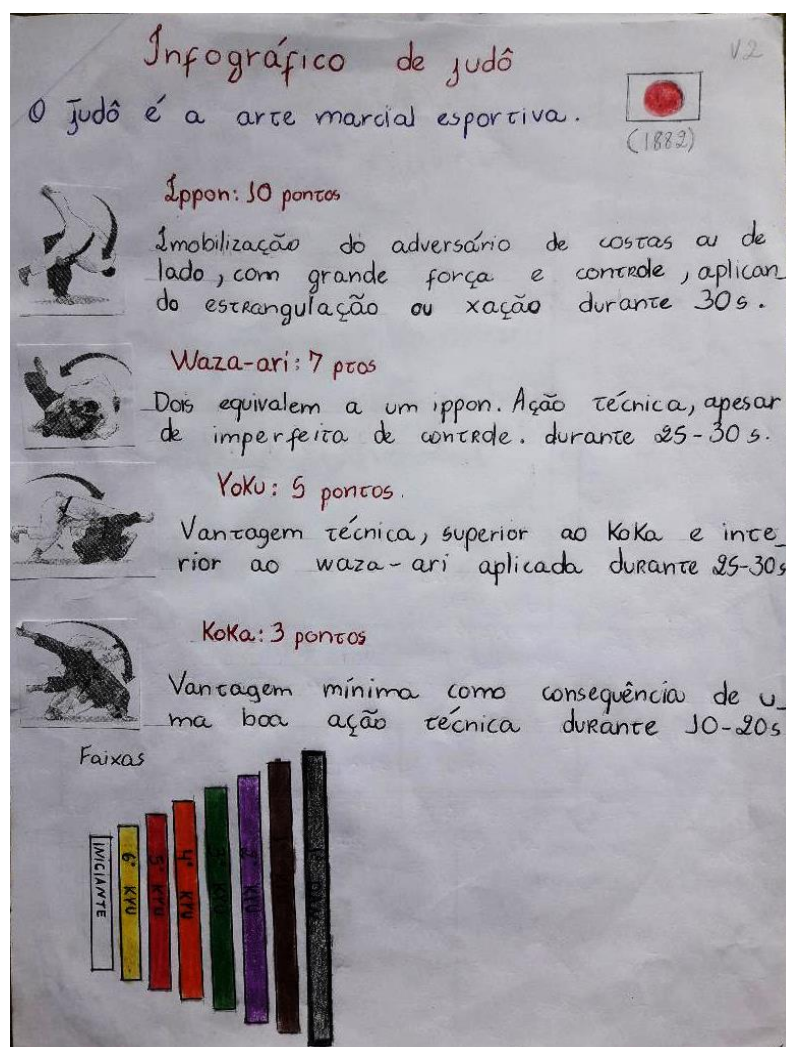 Infográfico de judô
V2
O judô é a arte marcial esportiva.
(1882)
Ippon: 10 pontos
Imobilização do adversário de costas ou de
lado, com grande força e controle, aplican_
do estrangulação ou xação durante 30s.
Waza-ari: 7 ptos
Dois equivalem a um ippon. Ação técnica, apesar
de imperfeita de controle. durante 25-30 s.
Yoku: 5 pontos.
Vantagem técnica, superior ao Koka e inte_
rior ao waza-ari aplicada durante 25-30s
Koka: 3 pontos
Vantagem mínima como consequência de u_
ma boa ação técnica durante 10-20s
Faixas
INICIANTE
6° KYU
5° KYU
4° KYU
3° KYU
2° KYU